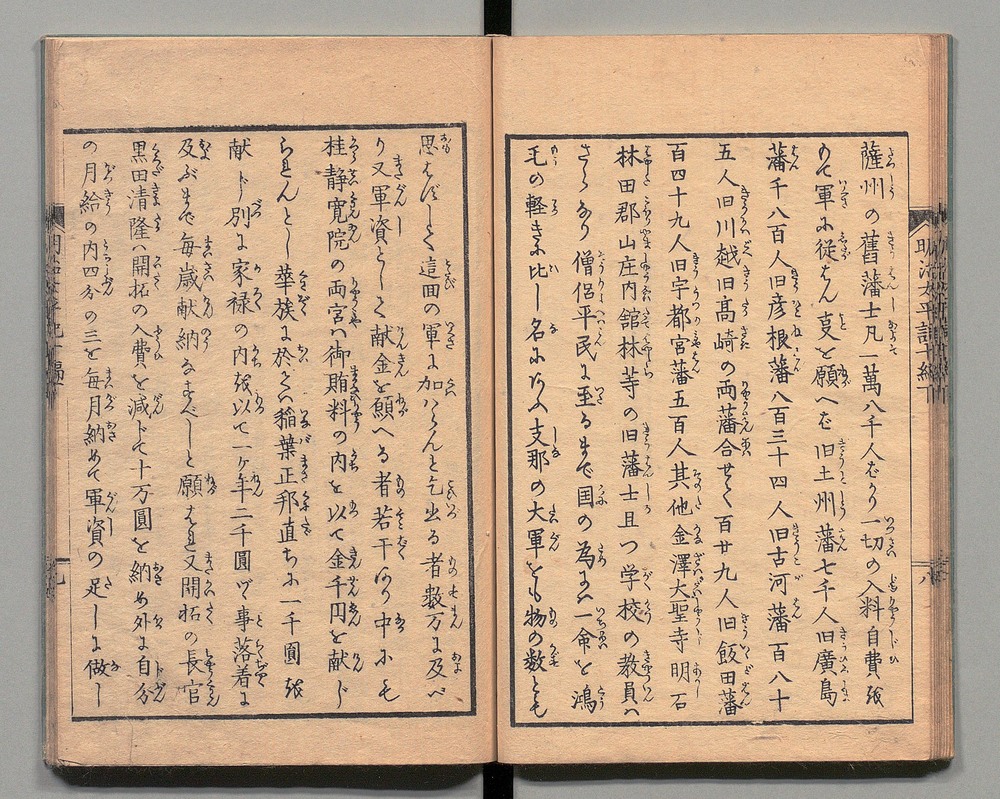 薩州の舊藩士凡一萬八千人ばかり一切の入料自費を
以て軍に従はん事を願へば旧土州藩七千人旧廣島
藩千八百人旧彦根藩八百三十四人旧古河藩百八十
五人旧川越旧高崎の両藩合せて百廿九人旧飯田藩
百四十九人旧宇都宮藩五百人其他金澤大聖寺明石
林田郡山庄内舘林等の旧藩士且つ学校の教員ハ
さらなり僧侶平民に至るまで国の為に一命を鴻
毛の軽きに比し名にあふ支那の大軍をも物の数とも
思はずして這回の軍に加ハらんと乞出る者数万に及べ
り又軍資として献金を願へる者若干あり中にも
桂静寛院の両宮ハ御賄料の内を以て金千円を献じ
られんとし華族に於てハ稲葉正邦直ちに一千圓を
献じ別に家禄の内を以て一ケ年二千圓ヅヽ事落着に
及ぶまで毎歳献納なすべしと願はれ又開拓の長官
黒田清隆ハ開拓の入費を減じて十万圓を納め外に自分
の月給の内四分の三を毎月納めて軍資の足しに做し